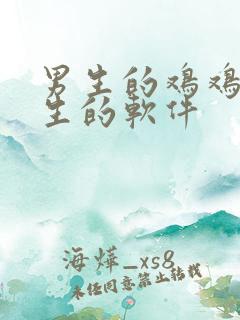 男生的鸡鸡
生的軟件
海燁_xs8
未经同意禁止转载